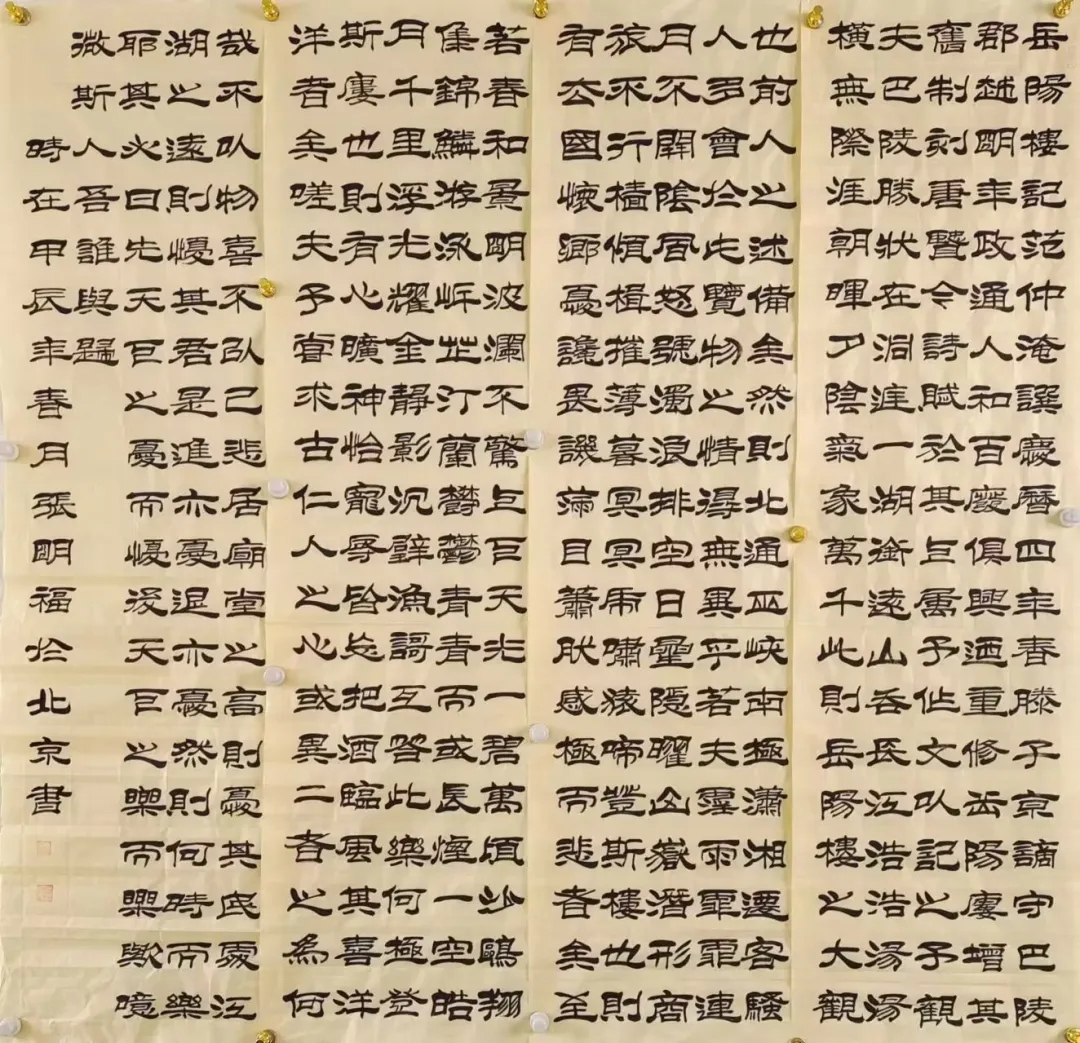 岳陽樓記范仲淹譔慶曆四年春滕子京謫守巴陵
郡越明年政通人和百廢俱興迺重修岳陽廔增其
舊制刻唐賢令詩賦於其上屬予作文以記之予觀
夫巴陵勝狀在洞庭一湖銜遠山吞長江浩浩湯湯
橫無際涯朝暉夕陰氣象萬千此則岳陽樓之大觀
也前人之述備矣然則北通巫峽南極瀟湘遷客騷
人多會於此覽物之情得無異乎若夫霪雨霏霏連
月不開陰風怒號濁浪排空日星隱曜山嶽潛形商
旅不行檣傾楫摧薄暮冥冥虎嘯猿啼登斯樓也則
有去國懷鄉憂讒畏譏滿目蕭然感極而悲者矣至
若春和景明波瀾不驚上下天光一碧萬頃沙鷗翔
集錦鱗游泳岸芷汀蘭鬱鬱青青而或長煙一空皓
月千里浮光耀金靜影沉璧漁謌互答此樂何極登
斯廔也則有心曠神怡寵辱皆忘把酒臨風其喜洋
洋者矣嗟夫予嘗求古仁人之心或異二者之為何
哉不以物喜不以己悲居廟堂之高則憂其民處江
湖之遠則憂其君是進亦憂退亦憂然則何時而樂
耶其必曰先天下之憂而憂後天下之樂而樂歟噫
微斯人吾誰與歸
時在甲辰年春月張明福於北京書